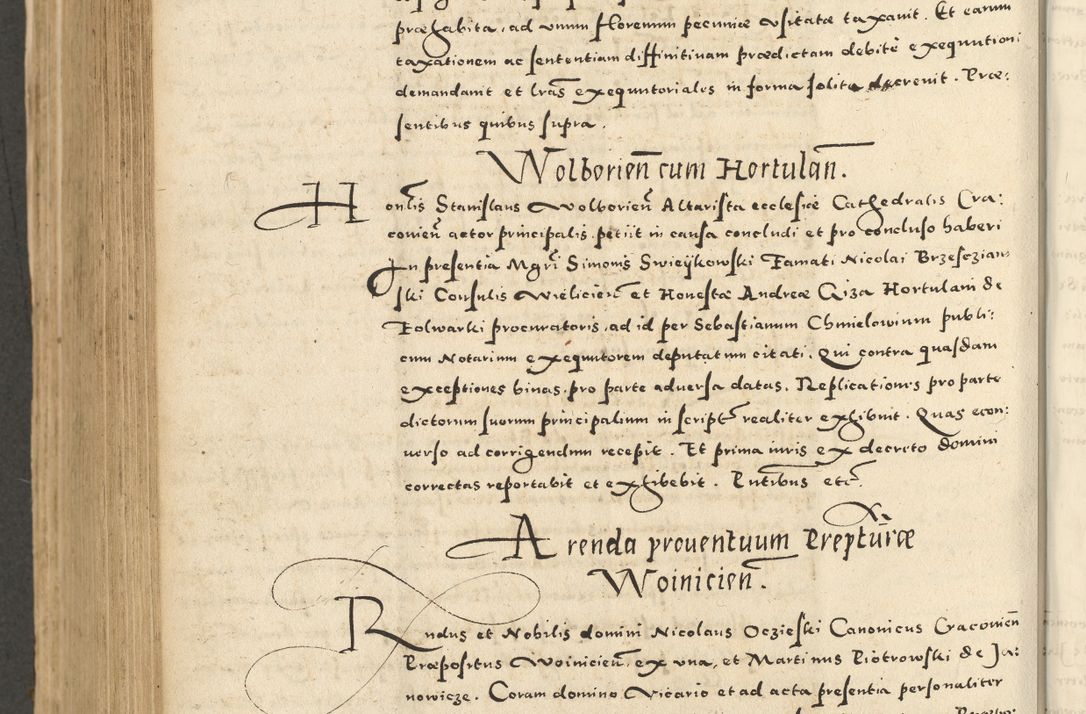 præhabita, ad unum florenum pecuniæ usitatæ taxavit. Et earum
taxationem ac sententiam diffinitivam prædictam debitè exequutioni
demandavit et lras exequutoriales in forma solita decrevit. Præ:
sentibus quibus supra.
Wolborien cum Hortulan.
Honlis Stanislaus Wolborien Altarista ecclesiæ Cathedralis Cra:
covien actor principalis petiit in causa concludi et pro concluso haberi
In presentia Mgri Simonis Swieykowski Famati Nicolai Brzesczian:
ski Consulis Wielicien et Honestæ Andreæ Giza Hortulani de
Folwarki procuratoris, ad id per Sebastianum Chmielowium publi:
cum Notarium exequutorem deputatum citati. Qui contra quasdam
exceptiones binas pro parte adversa datas. Replicationis pro parte
dictorum suorum principalium in script realiter exhibuit. Quas econ:
verso ad corrigendum recepit. Et prima iuris ex decreto domini
correctas reportabit et exhibebit. Pntibus etc.
Arenda proventuum Prepturæ
Woinicien.
Rndus et Nobilis domini Nicolaus Oczieski Canonicus Cracovien
Præpositus Woinicien, ex una, et Martinus Piotrowski de Ja:
nowicze. Coram domino Vicario et ad acta presentia personaliter